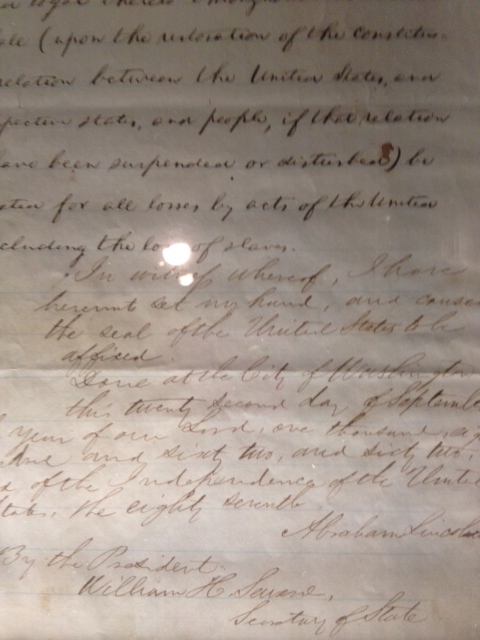 (upon the restoration of the constitu-
relation between the United States, and
states, and people, if that relation
have been suspended or disturbed) be
for all losses by acts of the United
cluding the loss of slaves.
In witness whereof, I have
hereunt set my hand, and cause
the seal of the United States to be
affixed.
Done at the City of Washington
this twenty second day of Septembe
year of our Lord, one thousand, eig
and sixty two, and sixty two,
of the Independence of the Unite
States, the eighty seventh.
Abraham Lincoln
By the President
William H. Seward,
Secretary of State